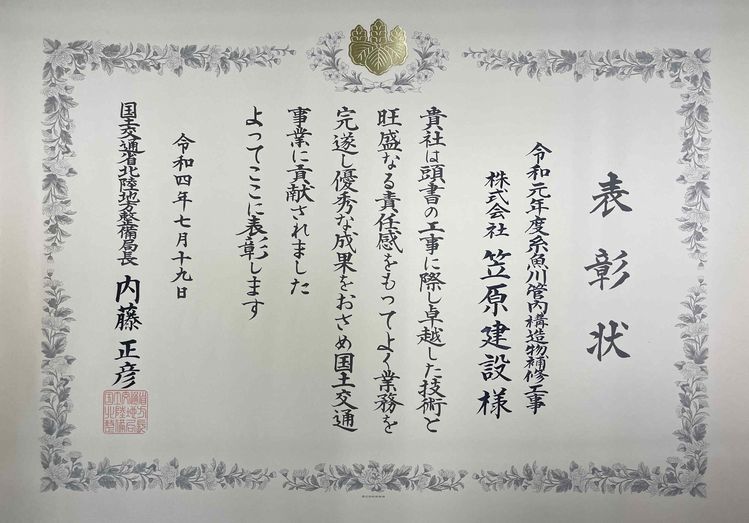 表彰状
令和元年度糸魚川管内構造物補修工事
株式会社 笠原建設 様
貴社は頭書の工事に際し卓越した技術と
旺盛なる責任感をもってよく業務を
完遂し優秀な成果をおさめ国土交通
事業に貢献されました
よってここに表彰します
令和四年七月十九日
国土交通省北陸地方整備局長 内藤 正彦